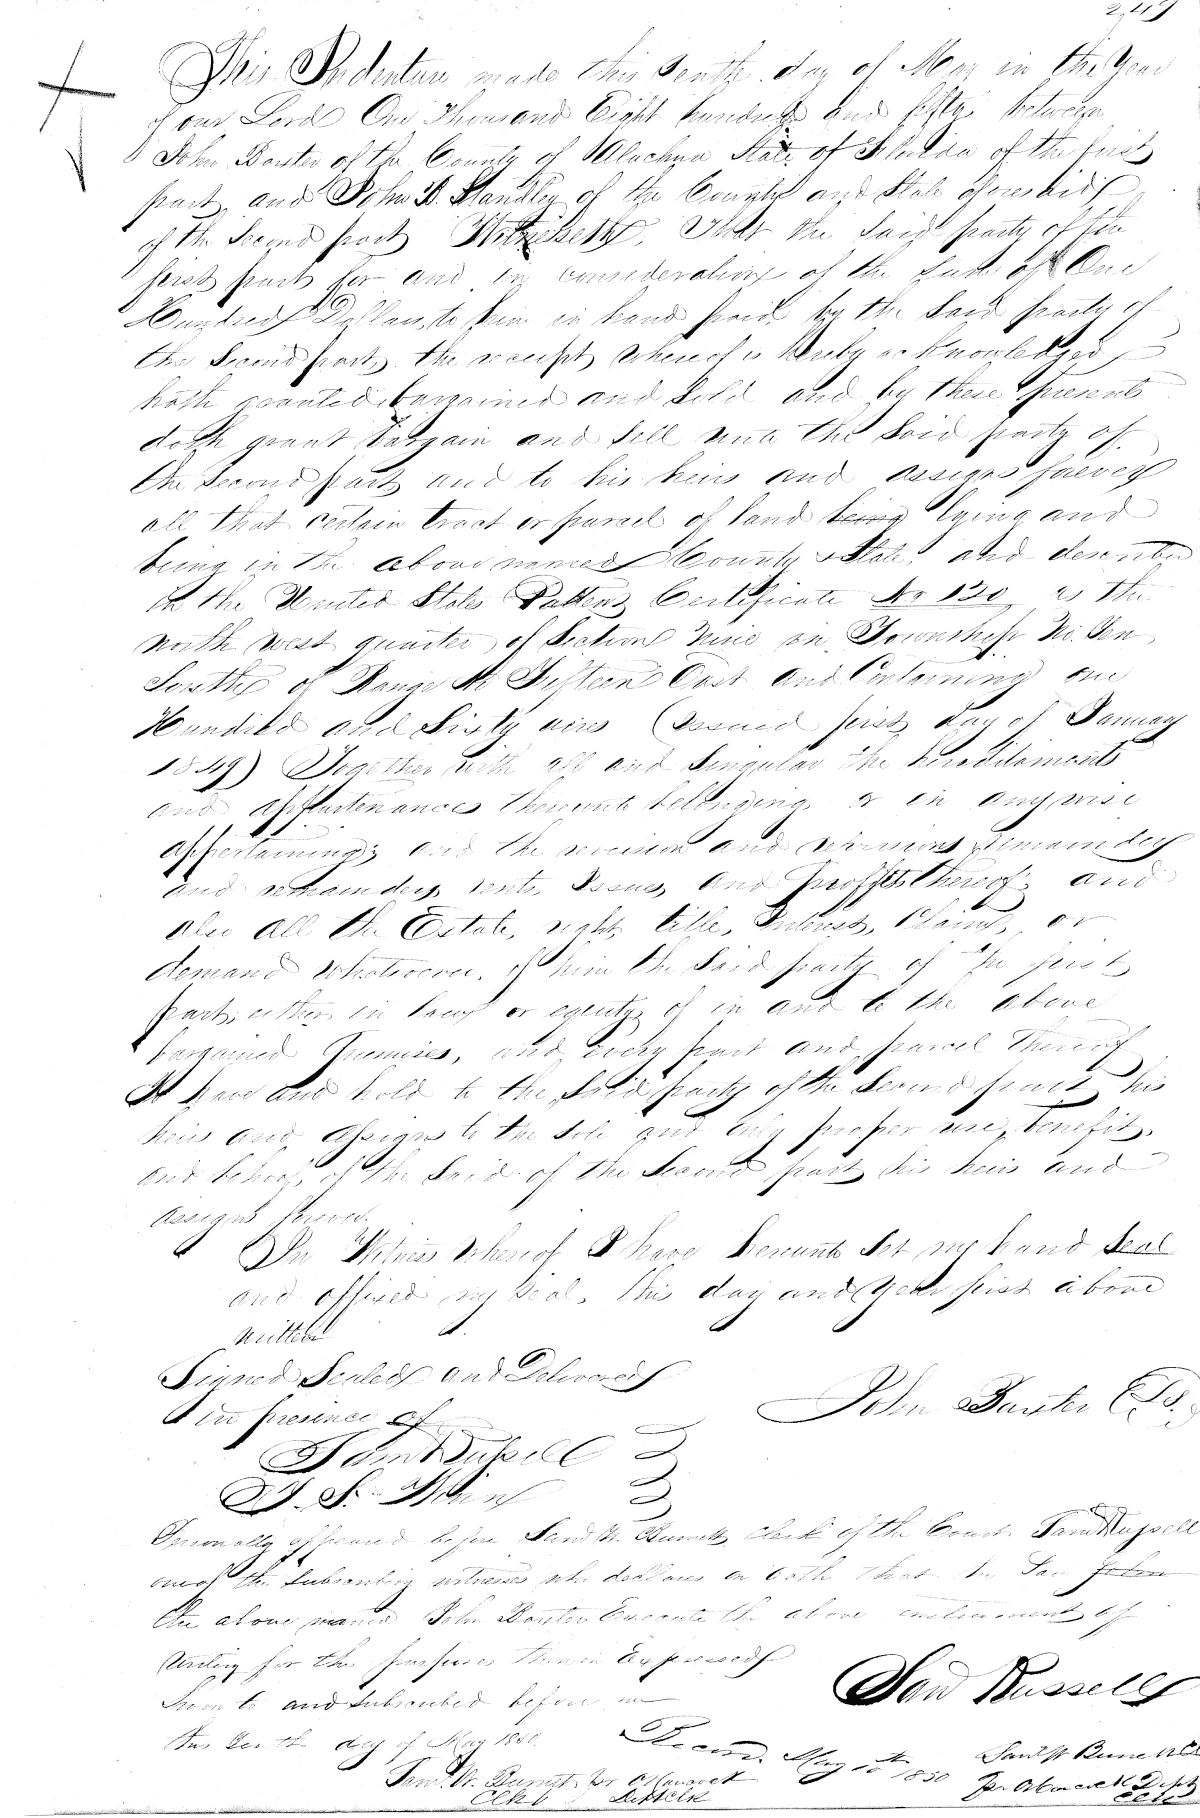 This Indenture made this tenth day of May in the Year
of our Lord One Thousand Eight hundred and fifty between
John Baxter of the County of Alachua State of Florida of the first
part and John B. Standley of the County and State aforesaid
of the Second part Witnesseth. That the Said party of the
first part for and in consideration of the Sum of One
Hundred Dollars, to him in hand paid by the Said party of
the Second part, the receipt whereof is hereby acknowledged
hath granted bargained and Sold and by these presents
doth grant bargain and Sell unto the Said party of
the Second part and to his heirs and assigns forever
all that certain tract or parcel of land being lying and
being in the above named County & State, and described
in the United States Certificate No 120 as the
north west quarter of Section Nine in Township No. Ten
South of Range No Fifteen East and Containing one
Hundred and Sixty acres (Issued first day of January
1849) Together with all and Singular the hereditaments
and appurtenances thereunto belonging or in anywise
appertaining; and the revision and revisions remainder
and remainders, rents, Issues, and profits thereof; and
also all the Estate, right, title, Interest, Claim, or
demand whatsoever, of him the Said party of the first
part, either in law or equity, of in and to the above
bargained premises, and every part and parcel thereof
To have and hold to the Said party of the Second part his
heirs and assigns to the sole and only proper use, benefit,
and behoof, of the Said of the Second part his heirs and
assigns forever.
In Witness whereof I have hereunto Set my hand seal
and affixed my seal, this day and year first above
written
Signed Sealed and Delivered
in presence of
John Baxter
Sam Russell
Personally appeared before Saml W. Burnett, clerk of the Court Saml Russell
one of the Subscribing witnesses who declares on oath that he Saw John
the above named John Baxter Execute the above instrument of
writing for the purposes therein Expressed
Saml Russell
Sworn to and Subscribed before me
this tenth day of May 1850.
Record. May 10th 1850
Saml W. Burnett
Saml. W. Burnett
Clk